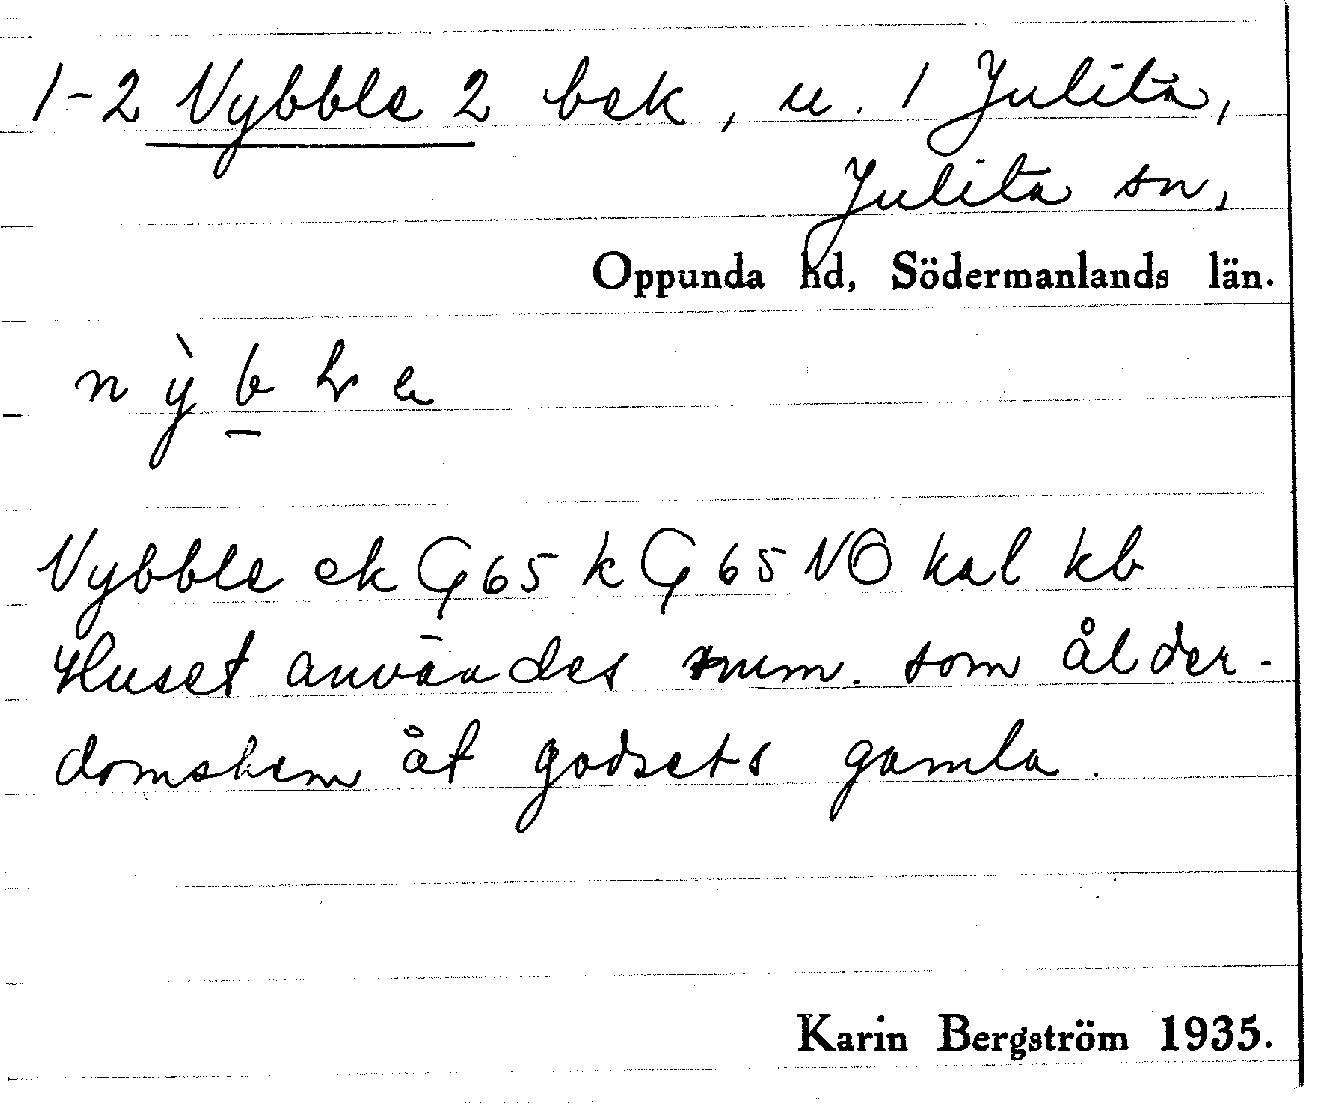 1-2 Nybble 2 bek, u. 1 Julita,
Julita sn,
Oppunda hd, Södermanlands län.
n ỳ b l e
Nybble ek G 65 k G 65 NO kal kb
Huset användes num. som ålder-
domshem åt godsets gamla.
Karin Bergström 1935.